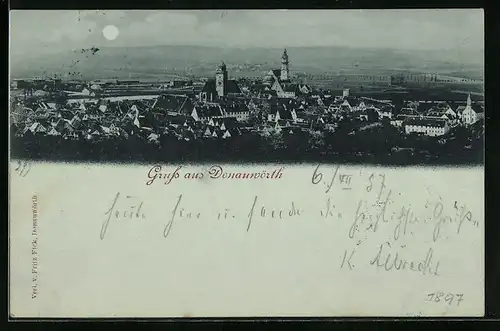 Gruß aus Donauwörth
6./VII 97
heute hier u. sende die herzlichsten Grüße.
K. Albrecht
1897
Verl. v. Fritz Fick, Donauwörth